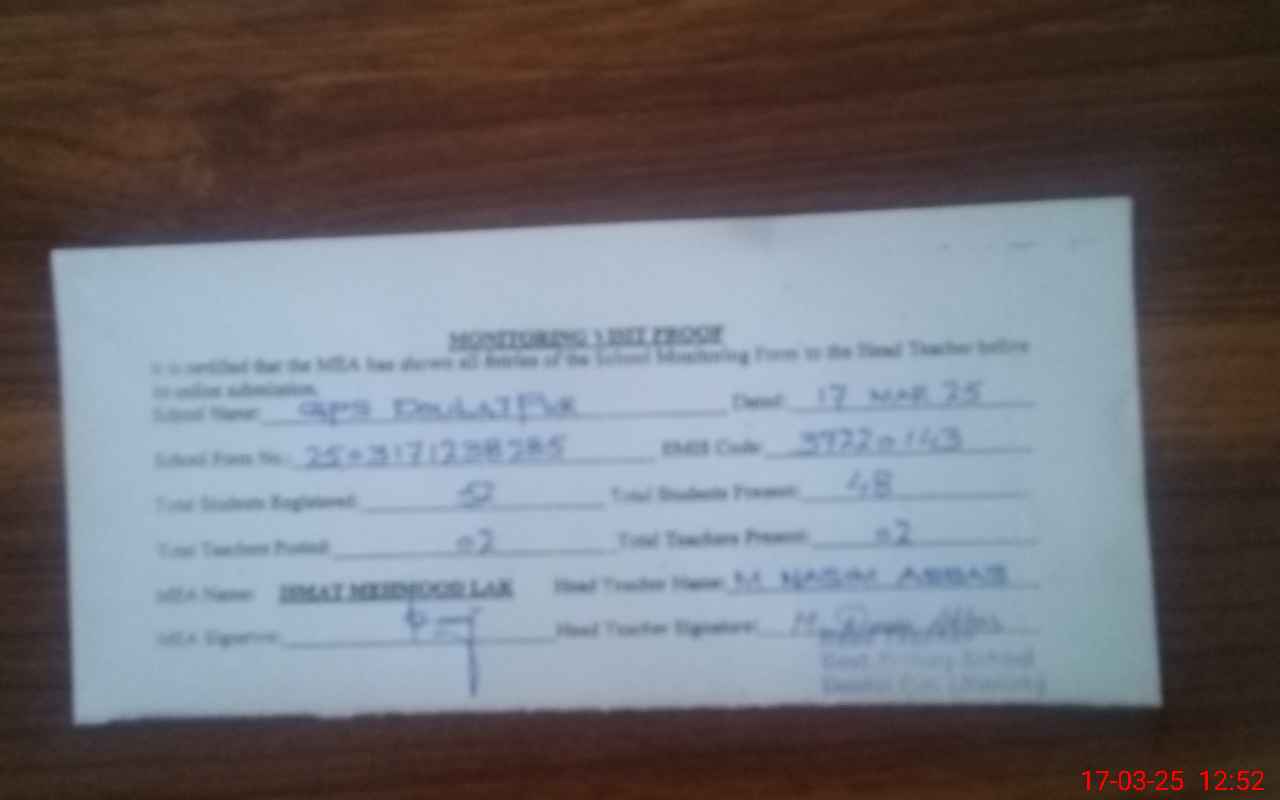 MONITORING VISIT PROOF
It is certified that the MEA has shown all Entries of the School Monitoring Form to the Head Teacher before
its online submission.
School Name: GPS DOULATPUR Dated: 17 MAR 25
School Form No.: 2503171238285 EMIS Code: 39220143
Total Students Registered: 52 Total Students Present: 48
Total Teachers Posted: 02 Total Teachers Present: 02
MEA Name: ISMAT MEHMOOD LAK Head Teacher Name: M NASIM ABBAS
MEA Signature: Head Teacher Signature: M
Govt. Primary School
17-03-25 12:52